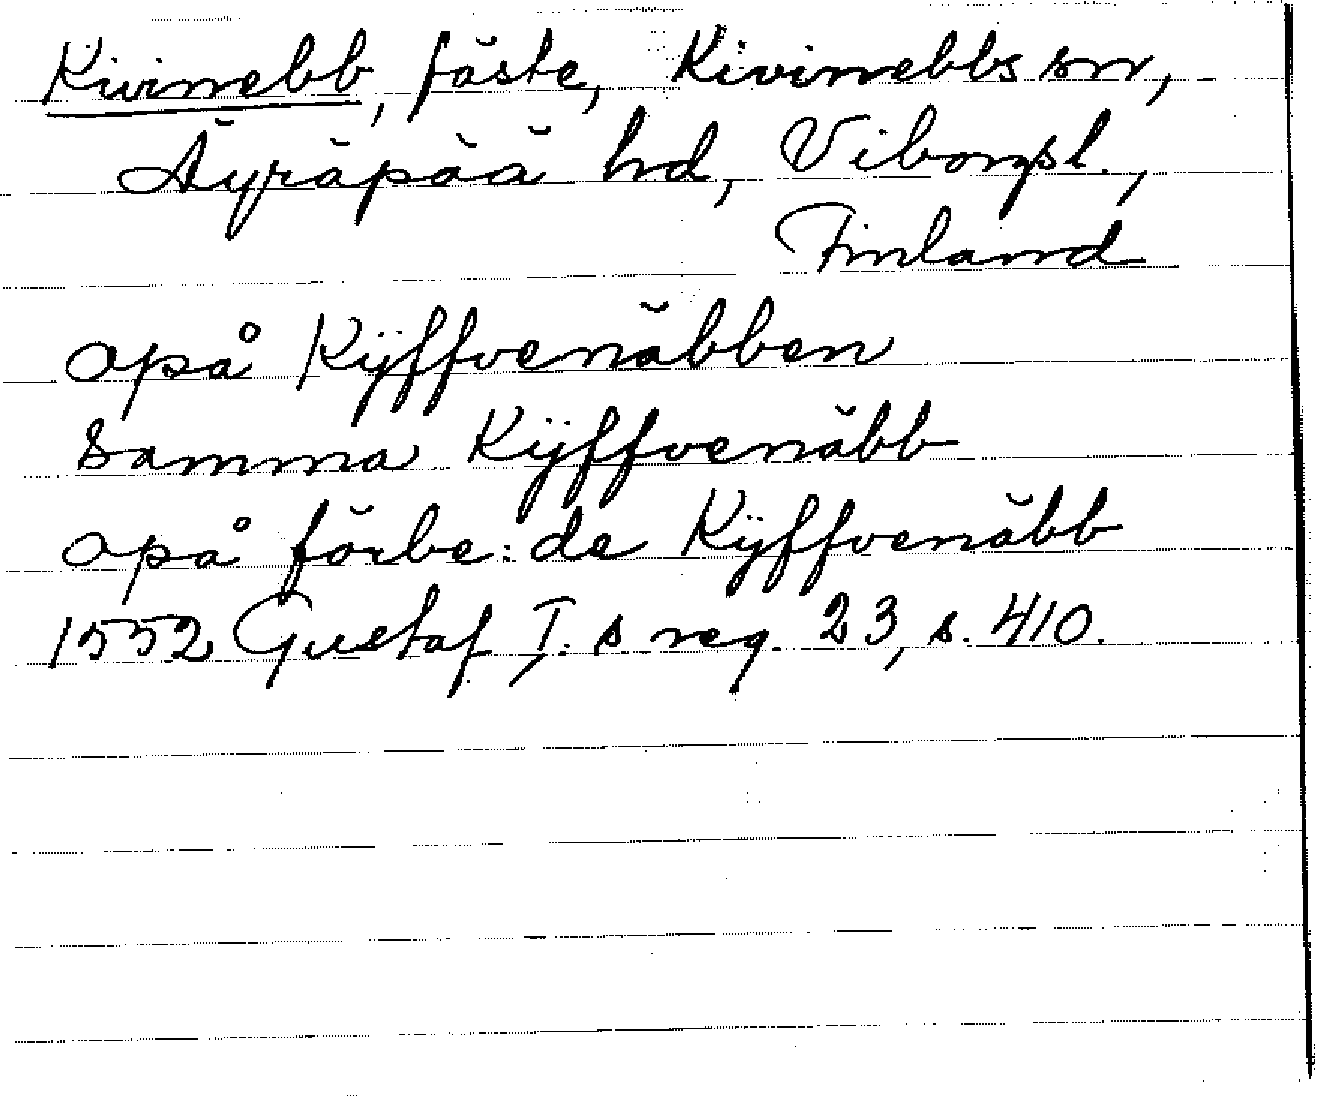 Kivinebb, fäste, Kivinebbs sn,
Äyräpää hd, Viborgsl.,
Finland
opå Kÿffvenäbben
samma Kÿffvenäbb
opå förbe:de Kÿffvenäbb
1552 Gustaf I:s reg. 23, s. 410.